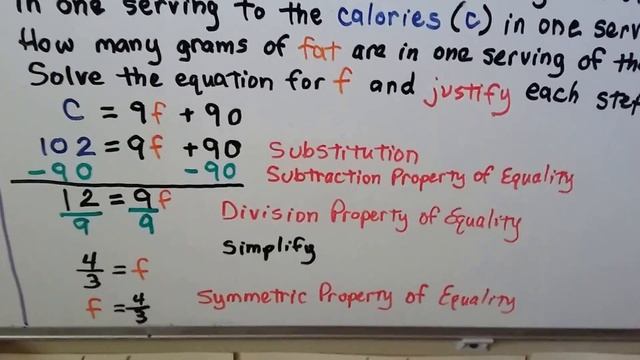 in one serving to the calories (c) in one
How many grams of fat are in one serving of
Solve the equation for f and justify each
C = 9f + 90
102 = 9f + 90 Substitution
-90 -90 Subtraction Property of Equality
12/9 = 9f/9 Division Property of Equality
Simplify
4/3 = f
f = 4/3 Symmetric Property of Equality